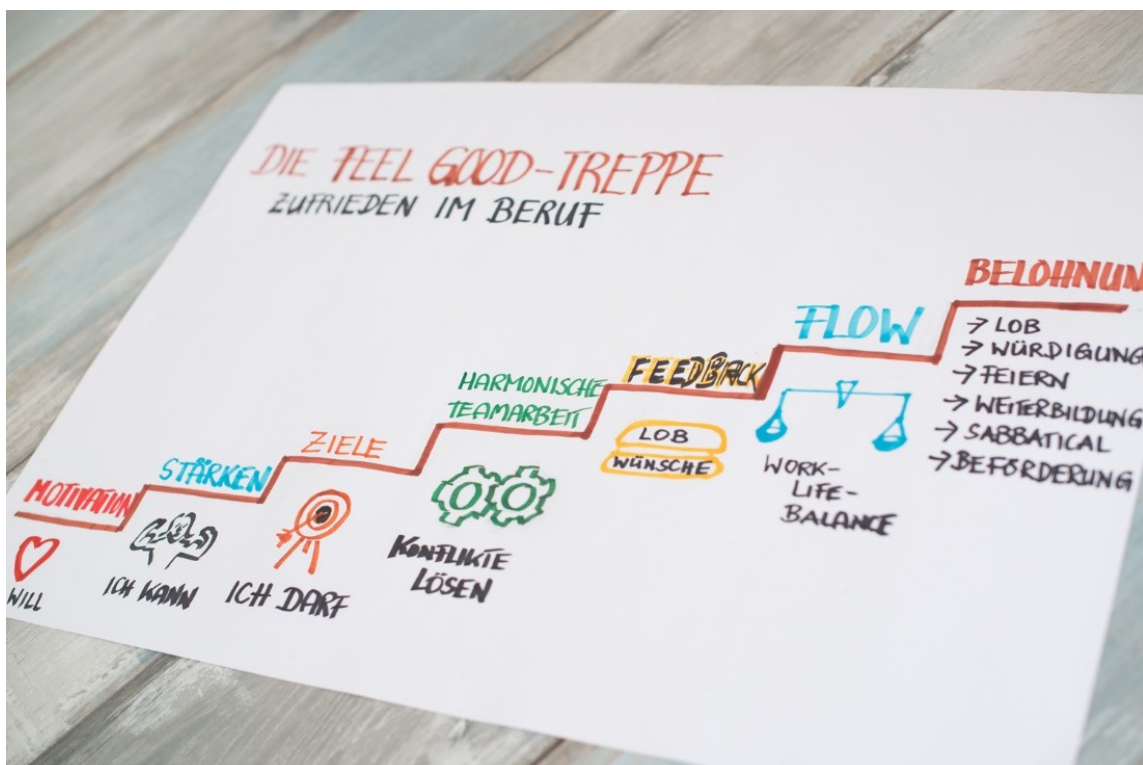 DIE FEEL GOOD-TREPPE
ZUFRIEDEN IM BERUF
MOTIVATION
WILL
STÄRKEN
ICH KANN
ZIELE
ICH DARF
HARMONISCHE
TEAMARBEIT
KONFLIKTE
LÖSEN
FEEDBACK
LOB
WÜNSCHE
FLOW
WORK-
LIFE-
BALANCE
BELOHNUN
→ LOB
→ WÜRDIGUNG
→ FEIERN
→ WEITERBILDUNG
→ SABBATICAL
→ BEFÖRDERUNG